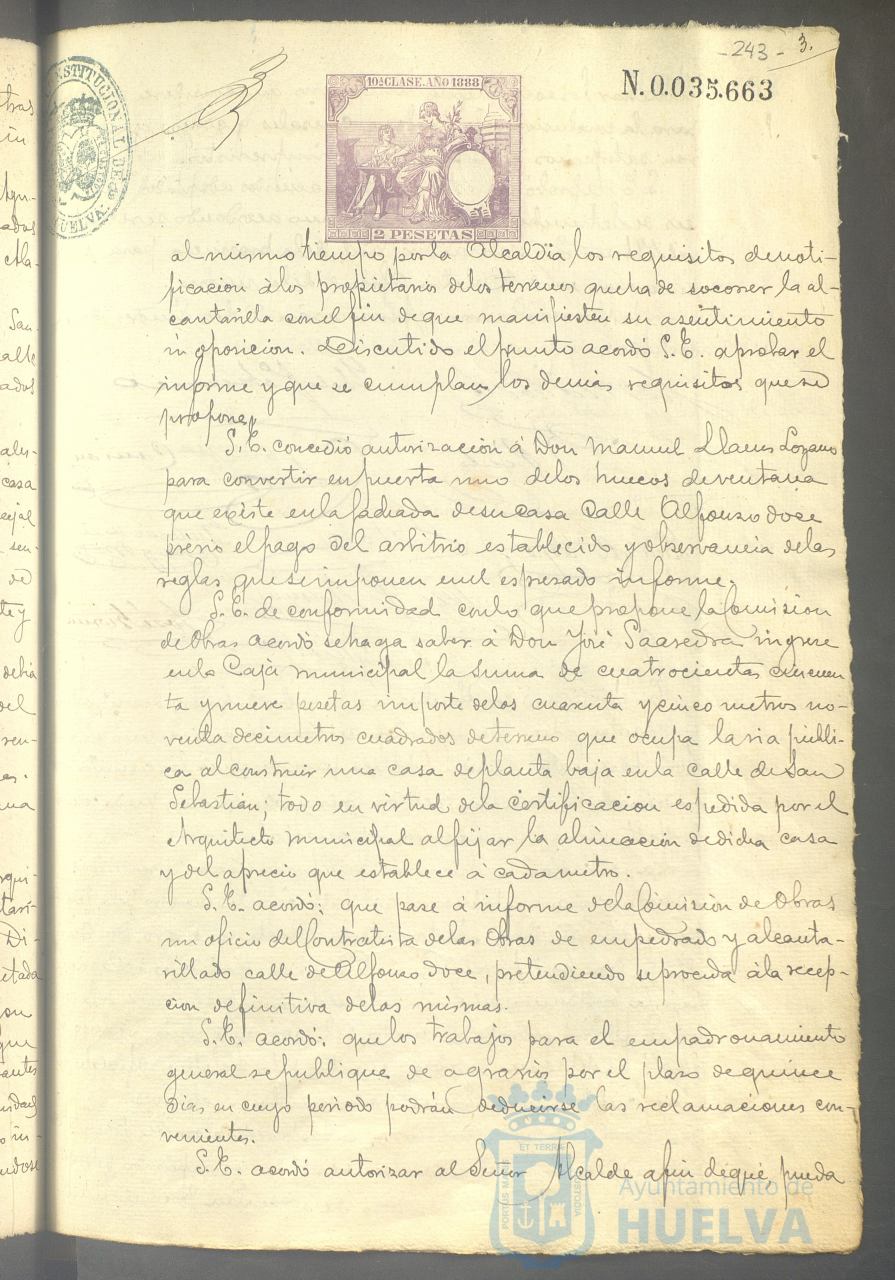 - 243 - 3.
N.0.035.663
10ª CLASE. AÑO 1888
2 PESETAS
CONSTITUCIONAL DE
HUELVA
al mismo tiempo por la Alcaldia los requisitos de noti-
ficacion á los propietarios de los terrenos que ha de socorrer la al-
cantarilla con el fin de que manifiesten su asentimiento
ú oposicion. Discutido el punto acordó S.E. aprobar el
informe y que se cumplan los demás requisitos que se
propone,,
S.E. concedió autorización á Don Manuel Llanes Lozano
para convertir en puerta uno de los huecos de ventana
que existe en la fachada de su casa Calle Alfonso doce
prévio el pago del arbitrio establecido y observancia de las
reglas que se imponen en el espresado informe.
S.E. de conformidad con lo que propone la Comision
de Obras acordó se haga saber á Don José Saavedra ingrese
en la Caja municipal la suma de cuatrocientas cincuen
ta y nueve pesetas importe de los cuarenta y cinco metros no-
venta decimetros cuadrados de terreno que ocupa la via públi-
ca al construir una casa de planta baja en la calle de San
Sebastián; todo en virtud de la certificacion espedida por el
Arquitecto municipal al fijar la alineación de dicha casa
y del aprecio que establece á cada metro.
S.E. acordó: que pase á informe de la Comisión de Obras
un oficio del Contratista de las Obras de empedrado y alcanta-
rillado calle de Alfonso doce, pretendiendo se proceda á la recep-
cion definitiva de las mismas.
S.E. acordó: que los trabajos para el empadronamiento
general se publique de agravios por el plazo de quince
dias en cuyo periodo podrán deducirse las reclamaciones con-
venientes.
S.E. acordó autorizar al Señor Alcalde a fin de que, pueda
ET TERRE
PORTUS MARIS
CUSTODIA
Ayuntamiento de
HUELVA